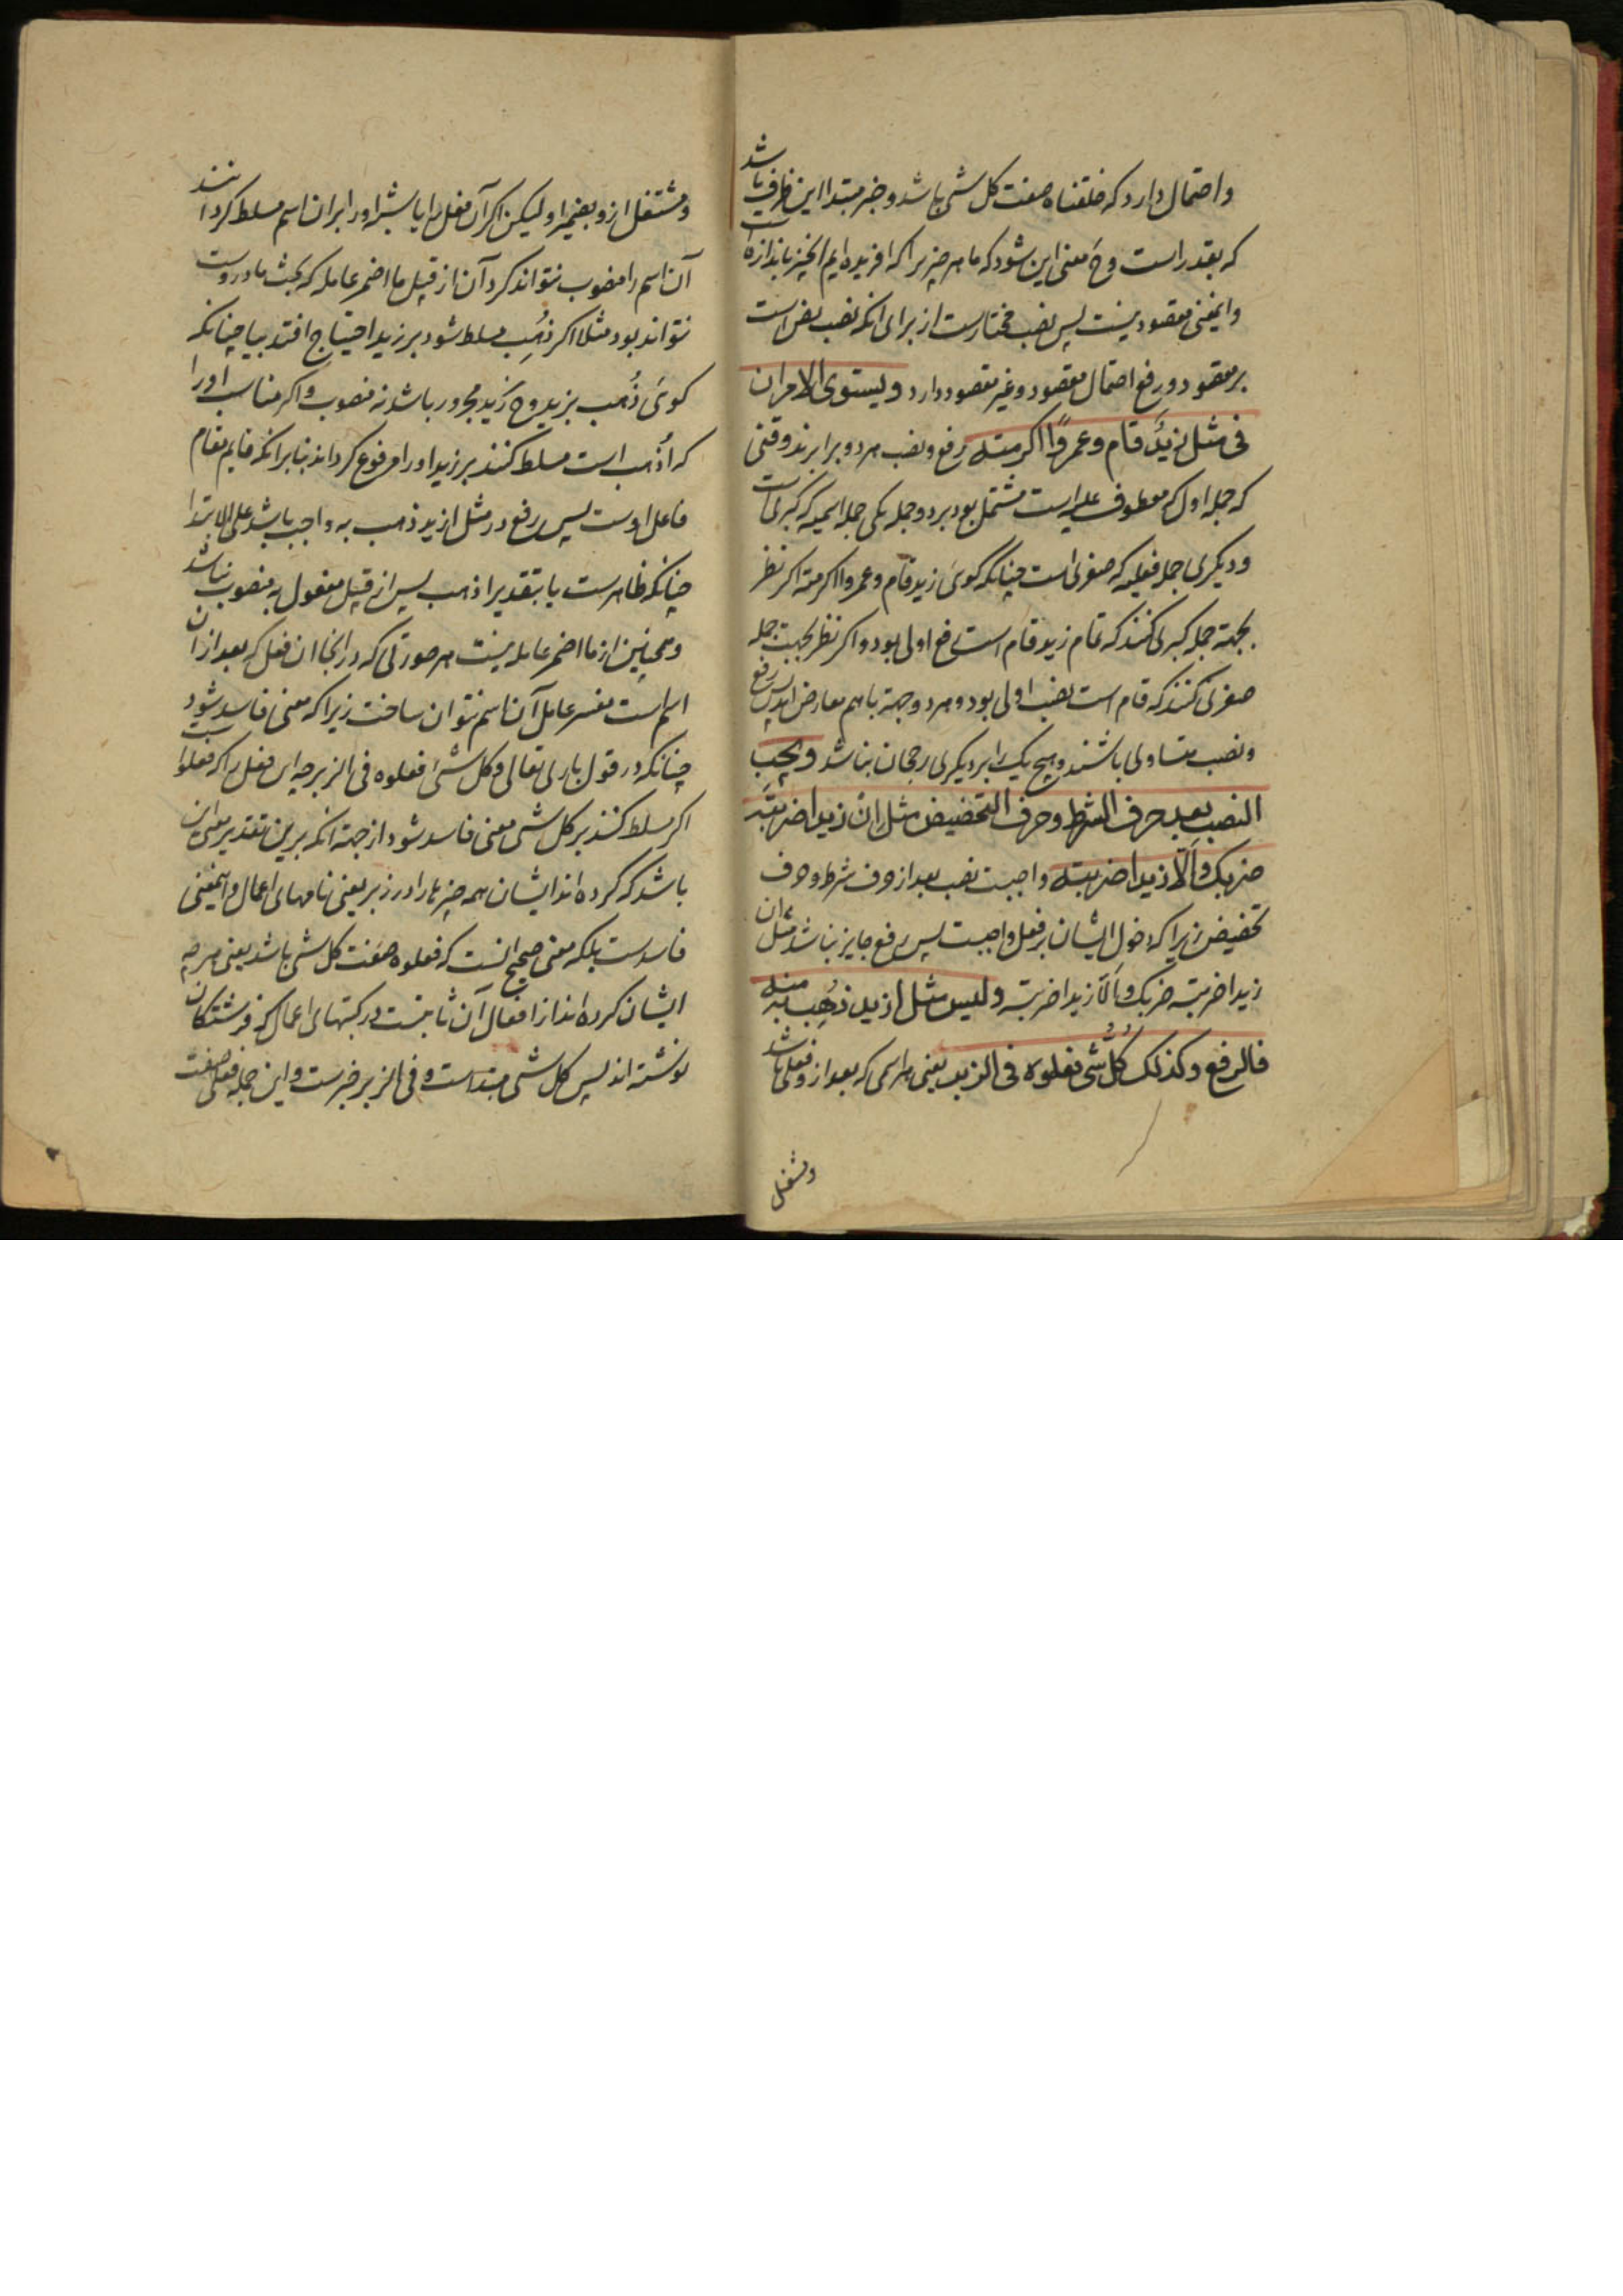 واحتمال دارد که خلقناه صفت کل شی باشد و خبر مبتدا این ظرف باشد
که بقدر است وح معنی این شود که ما هر چیز را که افریده ایم انچیز باندازه است
واینمعنی مقصود نیست پس نصب مختارست از برای انکه نصب نص است
بر مقصود و رفع احتمال مقصود و غیر مقصود دارد ویستوی الامران
فی مثل زیدٌ قام وعمروًا اکرمته رفع و نصب هر دو برابرند وقتی
که جمله اول که معطوف علیه است مشتمل بود بر دو جمله یکی جمله اسمیه که کبری است
ودیگری جمله فعلیه که صغری است چنانکه کوئی زید قام وعمروا اکرمته اکر نظر
بجهة جمله کبری کنند که تمام زید قام است رفع اولی بود و اکر نظر بجهت جمله
صغری کنند که قام است نصب اولی بود و هر دو جهة باهم معارض اند پس رفع
ونصب متساوی باشند و هیچ یک را بر دیکری رجحان نباشد ویجب
النصب بعد حرف الشرط وحرف التحضیض مثل ان زیدا ضربته
ضربک والّا زیدا ضربته واجبست نصب بعد از حرف شرط و حرف
تحضیض زیرا که دخول ایشان بر فعل واجبست پس رفع جایز نباشد مثل ان
زیدا ضربته ضربک والّا زیدا ضربته ولیس مثل ازید ذُهِب به منه
فالرفع وکذلک کُلُّ شیٍٔ فعلوه فی الزبر یعنی هر اسمی که بعد از و فعلی باشد
ومشتغل
ومشتغل ازو بضمیر او لیکن اکر آن فعل را یا مناسب او را بران اسم مسلط کردانند
آن اسم را منصوب نتواند کرد آن از قبیل ما اضمر عامله که بحث ما دروست
نتواند بود مثلا اکر ذُهِب مسلط شود بر زید احتیاج افتد ببا چنانکه
کوئی ذُهب بزید وح زید مجرور باشد نه منصوب و اکر مناسب او را
که اُذهب است مسلط کنند بر زید او را مرفوع کرداند بنا برانکه قایم مقام
فاعل اوست پس رفع در مثل ازید ذهب به واجب باشد علی الابتدا
چنانکه ظاهرست یا بتقدیر اذهب پس از قبیل مفعول به منصوب نباشد
وهمچنین از ما اضمر عامله نیست هر صورتی که در انجا ان فعل که بعد از ان
اسم است مفسر عامل آن اسم نتوان ساخت زیرا که معنی فاسد شود
چنانکه در قول باری تعالی وکل شیٔ فعلوه فی الزبر چه این فعل را که فعلوا ست
اکر مسلط کنند بر کل شی معنی فاسد شود از جهة انکه برین تقدیر معنی این
باشد که کرده اند ایشان همه چیزها را در زبر یعنی نامهای اعمال و اینمعنی
فاسدست بلکه معنی صحیح انست که فعلوه صفت کل شی باشد یعنی هر چه
ایشان کرده اند از افعال آن ثابتست در کتبهای اعمال که فرشتکان
نوشته اند پس کل شی مبتداست و فی الزبر خبرست و این جمله فعلی صفت